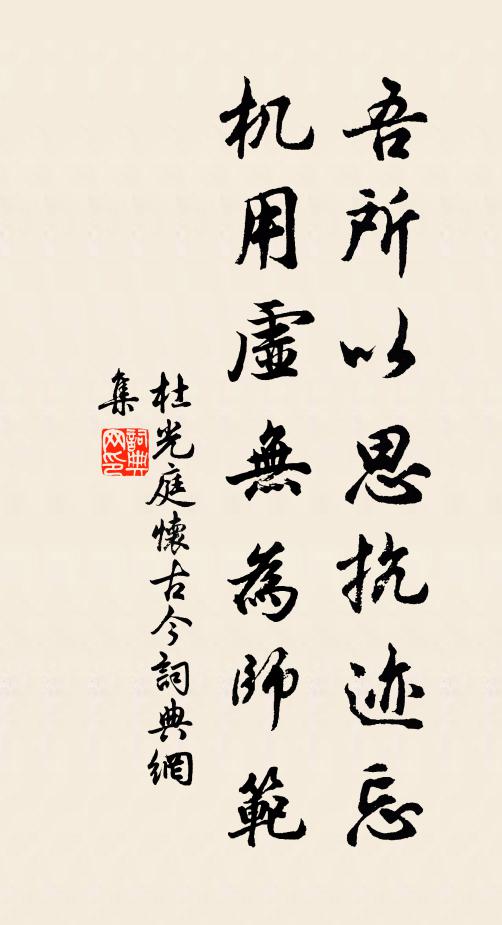 吾所以思抗迹忘
机用虛無為師範
杜光庭懷古今詞典網
集
詞典网印